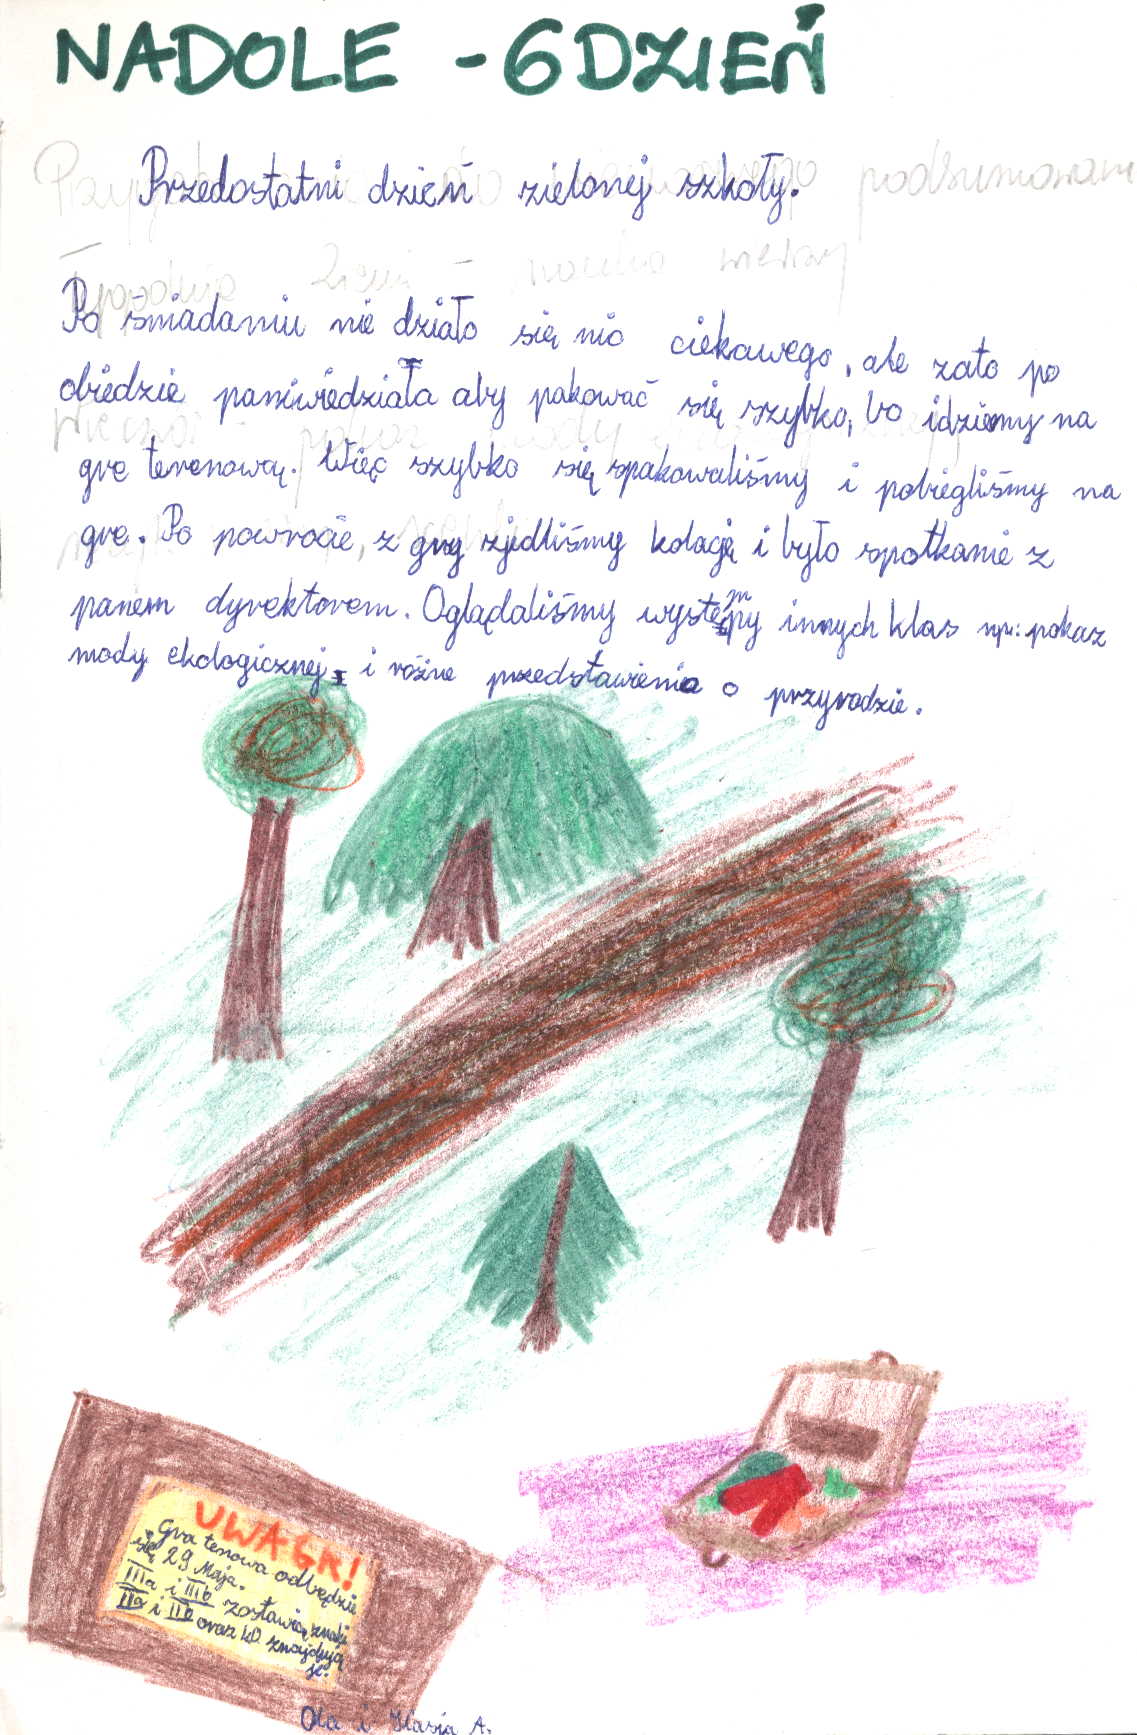 NADOLE - 6 DZIEŃ
Przedostatni dzień zielonej szkoły.
Po śniadaniu nie działo się nic ciekawego, ale zato po
obiedzie pani wiedziała aby pakować się szybko, bo idziemy na
grę terenową. Więc szybko się spakowaliśmy i pobiegliśmy na
grę. Po powrocie, z gry zjedliśmy kolację i było spotkanie z
panem dyrektorem. Oglądaliśmy występy innych klas np: pokaz
mody ekologicznej i różne przedstawienia o przyrodzie.
UWAGA!
Gra tenowa odbędzie
się 29 Maja.
IIIa i IIIb zostawią znaki
IIa i IIb oraz kl 0 znajdują
je.
Ola i Kasia A.